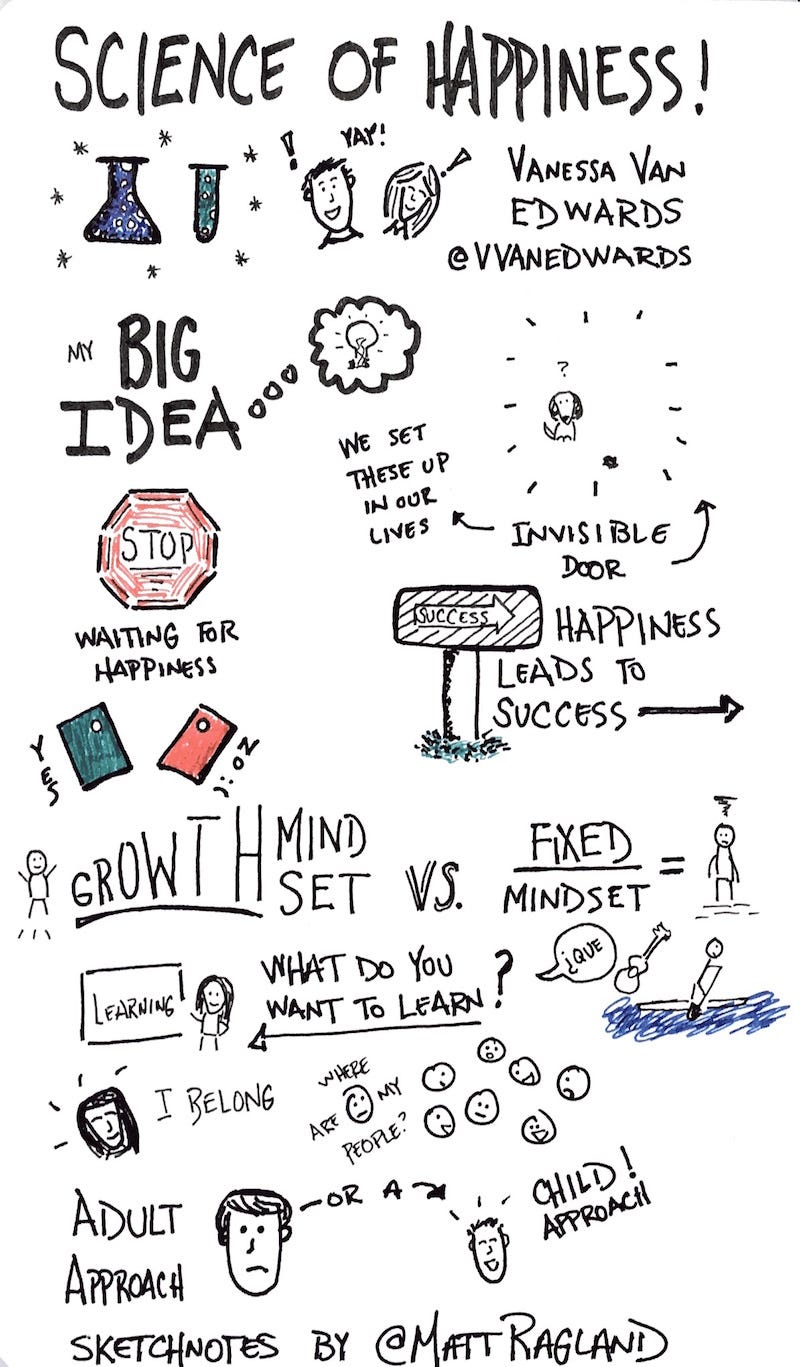 SCIENCE OF HAPPINESS!
! YAY! !
VANESSA VAN
EDWARDS
@VVANEDWARDS
MY BIG
IDEA
?
WE SET
THESE UP
IN OUR
LIVES
INVISIBLE
DOOR
STOP
WAITING FOR
HAPPINESS
SUCCESS
HAPPINESS
LEADS TO
SUCCESS
YES
NO
GROWTH MIND
SET
VS.
FIXED
MINDSET
=
LEARNING
WHAT DO YOU
WANT TO LEARN?
¿QUE
I BELONG
WHERE
ARE MY
PEOPLE?
ADULT
APPROACH
OR A
CHILD!
APPROACH
SKETCHNOTES BY @MATTRAGLAND